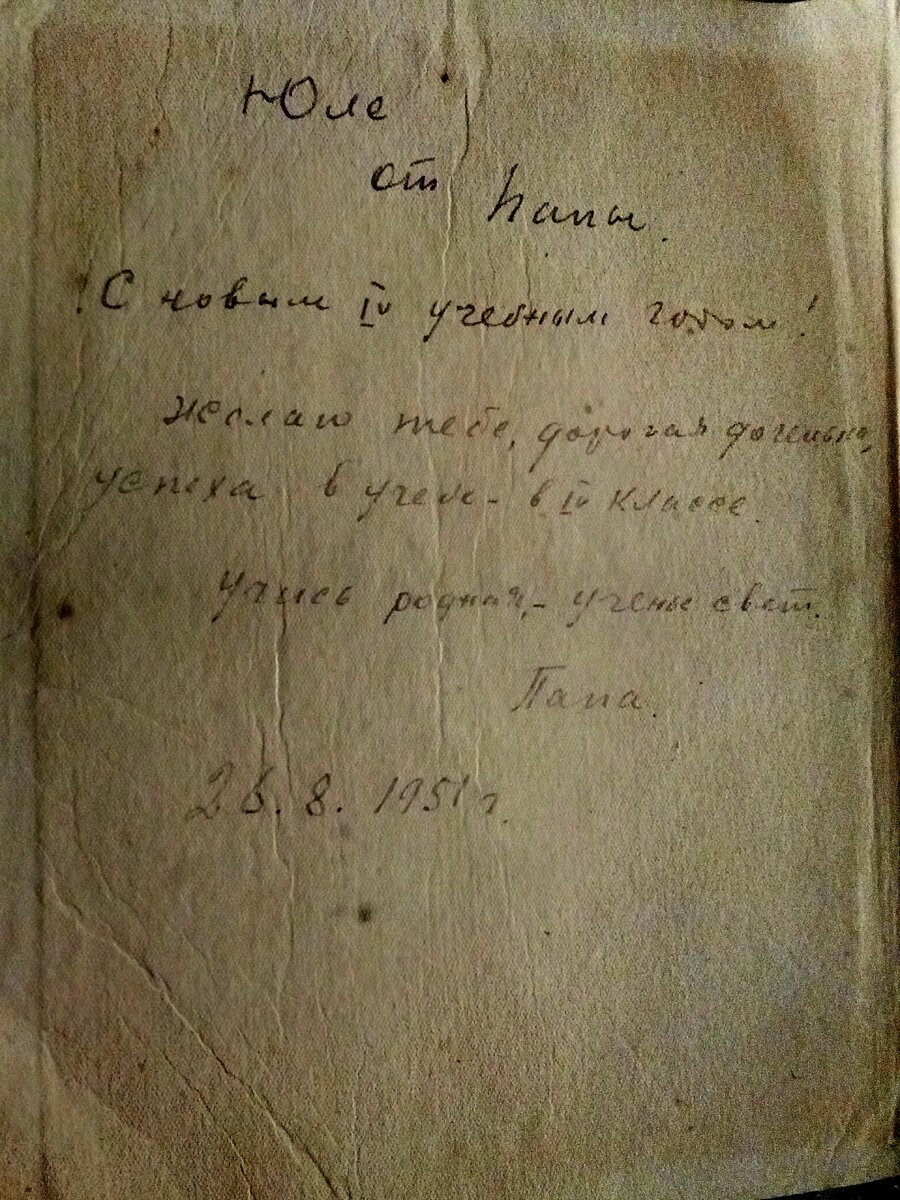 Юле
от
Папы.
С новым IV учебным годом!
Желаю тебе, дорогая доченька,
успеха в учебе - в IV классе.
Учись родная, - ученье свет.
Папа.
26.8.1951 г.